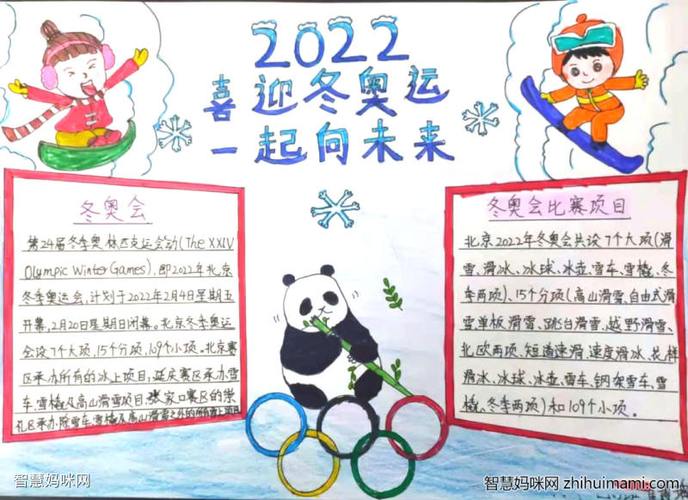 2022
喜迎冬奥运
一起向未来
冬奥会
第24届冬季奥林匹克运会动(The XXIV
Olympic Winter Games),即2022年北京
冬季奥运会,计划于2022年2月4日星期五
开幕,2月20日星期日闭幕。北京冬季奥运
会设7个大项,15个分项,109个小项。北京赛
区承办所有的冰上项目,延庆赛区承办雪
车、雪橇及高山滑雪项目,张家口赛区的崇
礼区承办除雪车、雪橇及高山滑雪之外的所有雪上项目
冬奥会比赛项目
北京2022年冬奥会共设7个大项(滑
雪、滑冰、冰球、冰壶、雪车、雪橇、冬
季两项)、15个分项(高山滑雪、自由式滑
雪、单板滑雪、跳台滑雪、越野滑雪、
北欧两项、短道速滑、速度滑冰、花样
滑冰、冰球、冰壶、雪车、钢架雪车、雪
橇、冬季两项)和109个小项。
智慧妈咪网
智慧妈咪网 zhihuimami.com